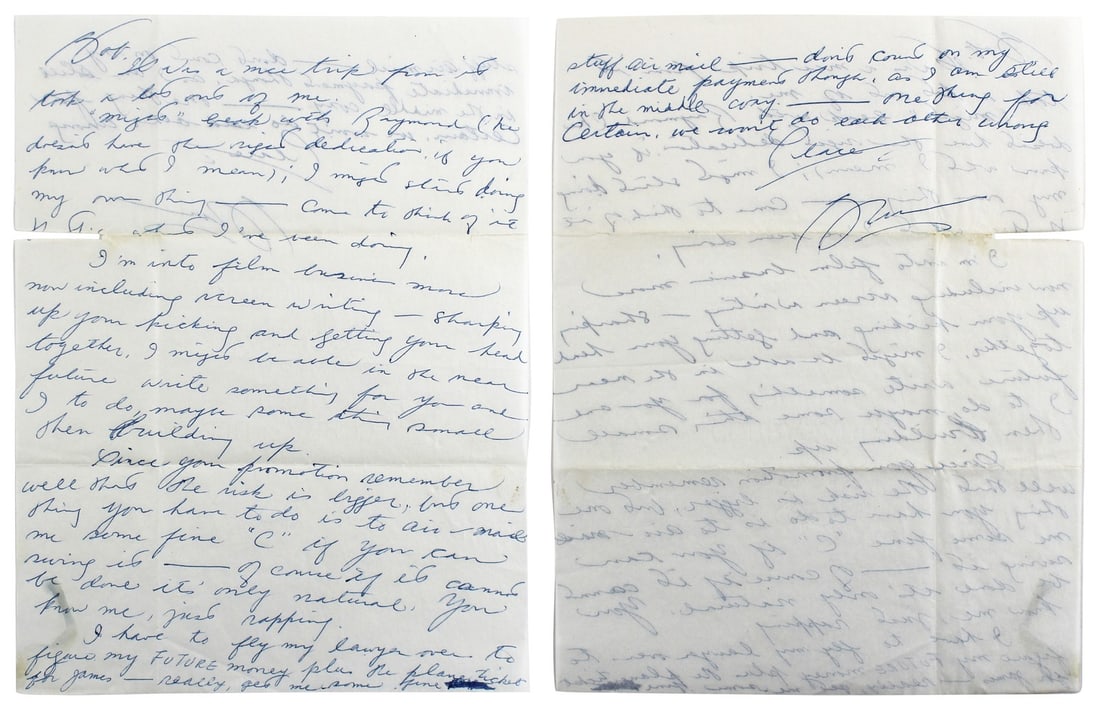 Bob,
It was a nice trip from it
took a lot out of me
"might" break with Raymond (he
doesn't have the right dedication, if you
know what I mean), I might start doing
my own thing — Come to think of it
what I've been doing
I'm into film business more
now including screen writing — sharping
up your kicking and getting your head
together, I might be able in the near
future write something for you and
I to do, maybe some thing small
then building up.
Since your promotion remember
well that the risk is bigger, but one
thing you have to do is to air-mail
me some fine "C" if you can
swing it — of course if it cannot
be done it's only natural. You
know me, just rapping.
I have to fly my lawyer over to
figure my FUTURE money plus the plane ticket
for James — really, get me some fine
stuff air mail — don't count on my
immediate payment though, as I am still
in the middle way — one thing for
certain, we won't do each other wrong
Peace